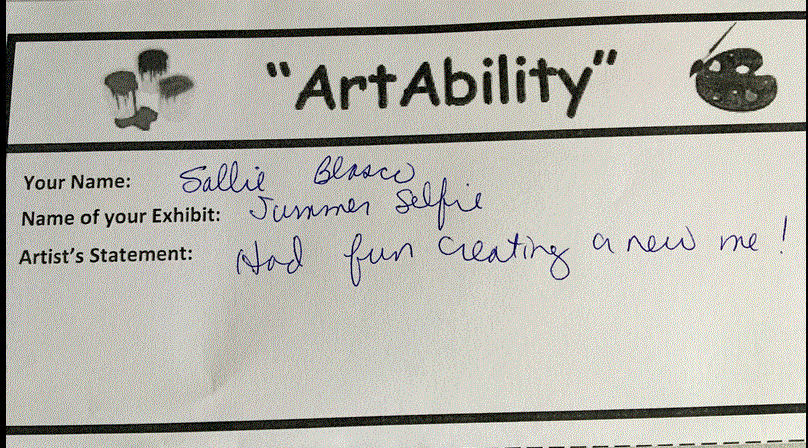 "ArtAbility"
Your Name: Sallie Blasco
Name of your Exhibit: Summer Selfie
Artist's Statement: Had fun creating a new me!